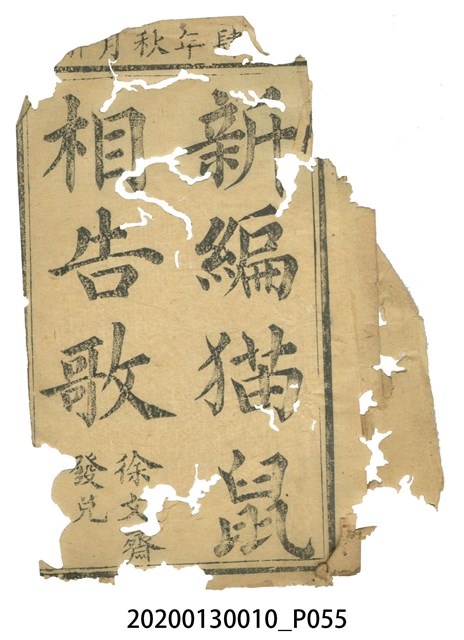 年秋月
新編猫鼠
相告歌
徐文齋
發兌
20200130010_P055